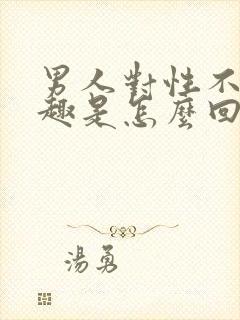 男人對性不
趣是怎麼回
湯勇